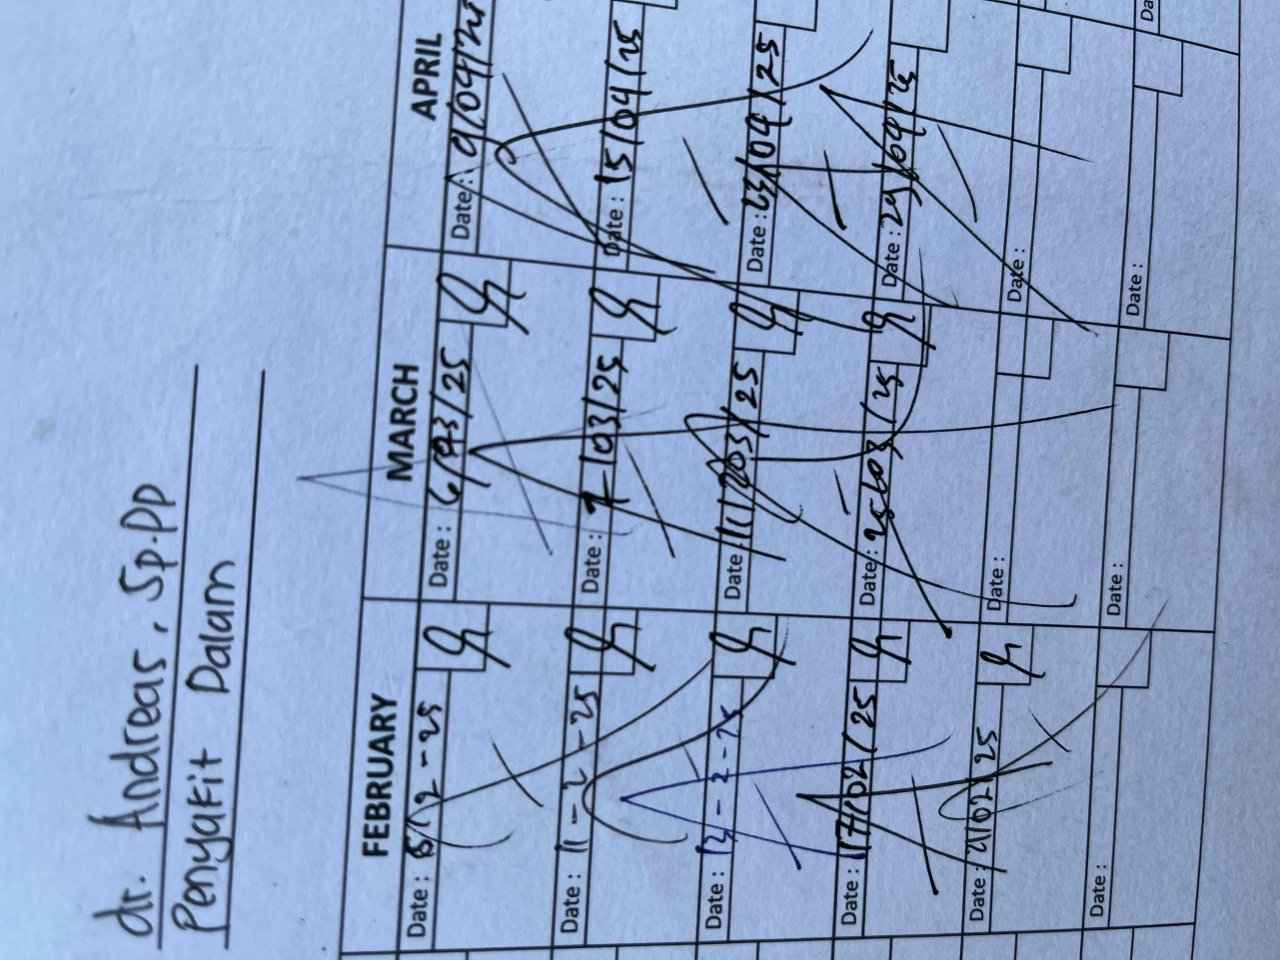 dr. Andreas, Sp.PD
Penyakit Dalam
FEBRUARY MARCH APRIL
Date: 5/2-25 Date: 6/03/25 Date: 9/04/25
Date: 11-2-25 Date: 7/03/25 Date: 15/04/25
Date: 13-2-25 Date: 11/03/25 Date: 23/04/25
Date: 17/02/25 Date: 25/03/25 Date: 29/04/25
Date: 21/02 25 Date: Date:
Date: Date: Date: